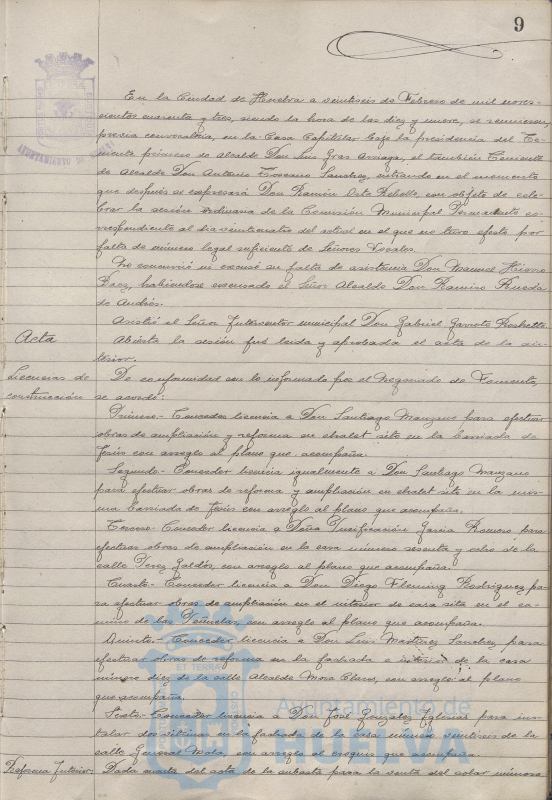 9
En la Ciudad de Huelva a veintiseis de Febrero de mil nove-
cientos cuarenta y tres, siendo la hora de las diez y nueve, se reunieron,
previa convocatoria, en la Casa Capitular bajo la presidencia del Te-
niente primero de Alcalde Don Luis Gras Arriaga, el también Teniente
de Alcalde Don Antonio Toscano Sanchez, entrando en el momento
que después se expresará Don Ramón Orta Rebollo, con objeto de cele-
brar la sesión ordinaria de la Comisión Municipal Permanente co-
rrespondiente al dia veinticuatro del actual en el que no tuvo efecto por
falta de número legal suficiente de Señores Vocales.
No concurrió ni excusó su falta de asistencia Don Manuel Hierro
habiéndose excusado el Señor Alcalde Don Ramiro Rueda
de Andrés.
Asistió el Señor Interventor municipal Don Gabriel Garrote
Acta
Abierta la sesión fué leida y aprobada el acta de la an-
terior.
Licencias de
construcción
De conformidad con lo informado por el Negociado de Fomento,
se acordó:
Primero.- Conceder licencia a Don Santiago Manzano para efectuar
obras de ampliación y reforma en chalet sito en la barriada de
Jesús con arreglo al plano que acompaña.
Segundo.- Conceder licencia igualmente a Don Santiago Manzano
para efectuar obras de reforma y ampliación en chalet sito en la mis-
ma barriada de Jesús con arreglo al plano que acompaña.
Tercero- Conceder licencia a Doña Purificación Garcia Romero para
efectuar obras de ampliación en la casa número sesenta y ocho de la
calle Perez Galdós, con arreglo al plano que acompaña.
Cuarto- Conceder licencia a Don Diego Fleming Rodriguez pa-
ra efectuar obras de ampliación en el interior de casa sita en el ca-
mino de las con arreglo al plano que acompaña.
Quinto- Conceder licencia a Don Luis Martinez Sanchez para
efectuar obras de reforma en la fachada e interior de la casa
número diez de la calle Alcalde Mora Claros, con arreglo al plano
que acompaña.
Sexto- Conceder licencia a Don José Gonzalez Iglesias para ins-
talar dos vitrinas en la fachada de la casa número veintiseis de la
calle General Mola, con arreglo al croquis que acompaña.
Reforma Interior.
Dada cuenta del acta de la subasta para la venta del solar número
AYUNTAMIENTO DE HUELVA
Ayuntamiento de
HUELVA